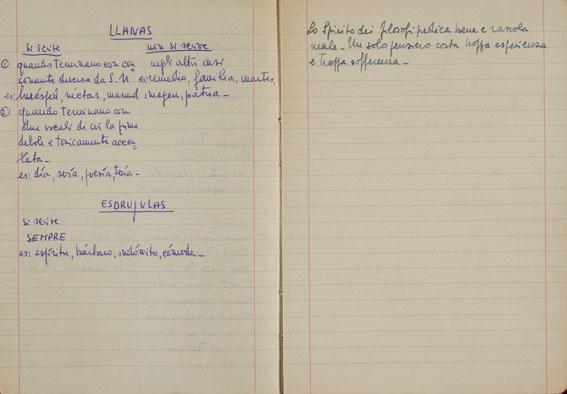 LLANAS
si scrive non si scrive
① quando terminano con con negli altri casi
sonante diversa da S. N es: remedio, familia, martes,
es: huésped, néctar, mármol imagen, patria _
② quando terminano con
due vocali di cui la prima
debole e tonicamente accen_
tata _
es: día, sería, poesía, tenía _
ESDRUJULAS
si scrive
SEMPRE
es: espíritu, bárbaro, indómito, cómoda _
Lo Spirito dei filosofi predica bene e razzola
male _ Un solo pensiero costa troppa esperienza
e troppa sofferenza _